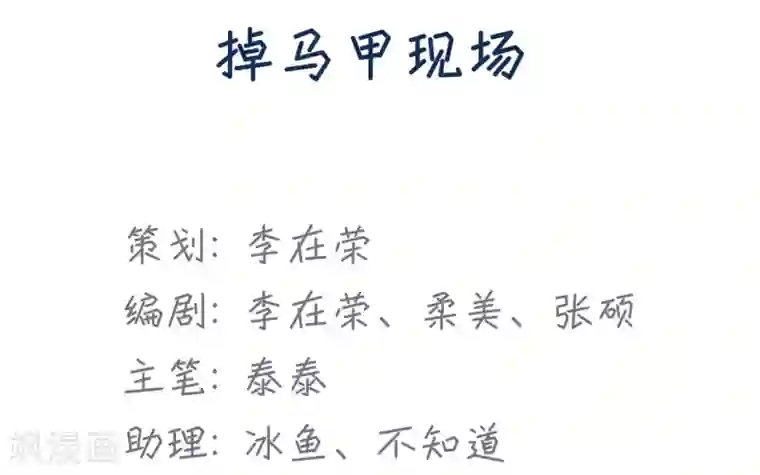 掉马甲现场
策划: 李在荣
编剧: 李在荣、柔美、张硕
主笔: 泰泰
助理: 冰鱼、不知道
飒漫画